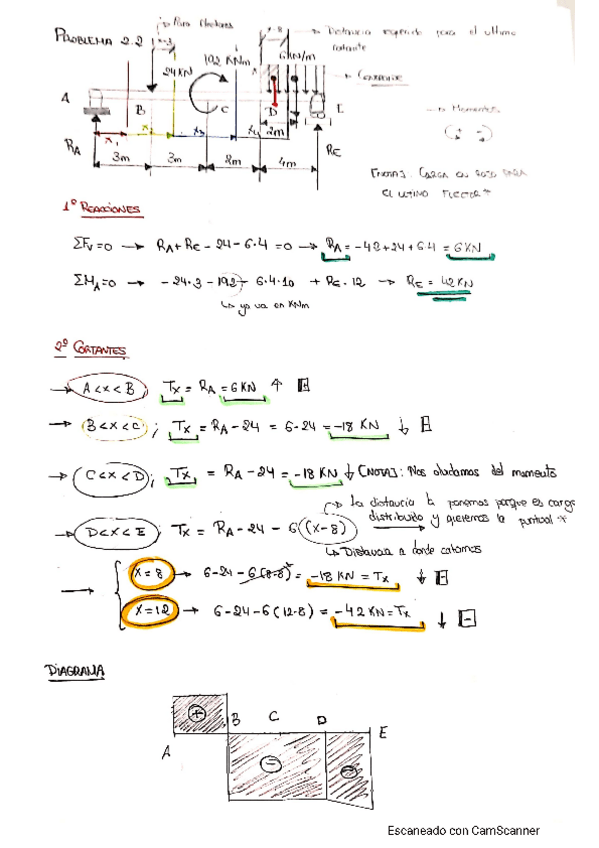 PROBLEMA 2.2
Para Cortantes
x-8
Distancia requerido para el ultimo
cortante
24KN
192 KNm
6KN/m
Cortante
A
B
C
D
E
Momentos
x₁
x₂
x₃
x₄
2m
RA
RE
3m
3m
2m
4m
[NOTA]: CARGA EN ROJO PARA
EL ULTIMO FLECTOR *
1º REACCIONES
ΣFv=0 → RA+RE-24-6·4=0 → RA=-42+24+6·4=6KN
ΣMA=0 → -24·3-192-6·4·10+RE·12 → RE=42KN
↳ ya va en KNm
2º CORTANTES
→ A<x<B } Tx = RA = 6KN ↑ +
→ B<x<C ; Tx = RA-24 = 6-24 = -18 KN ↓ -
→ C<x<D ; Tx = RA-24 = -18 KN ↓ [NOTA]: Nos olvidamos del momento
La distancia la ponemos porque es carga
distribuido y queremos la puntual *
→ D<x<E ; Tx = RA-24-6(x-8)
↳ Distancia a donde cortamos
→ { x=8 → 6-24-6(8-8) = -18 KN = Tx ↓ -
x=12 → 6-24-6(12-8) = -42KN=Tx ↓ -
DIAGRAMA
+
B
C
D
E
A
-
-
Escaneado con CamScanner